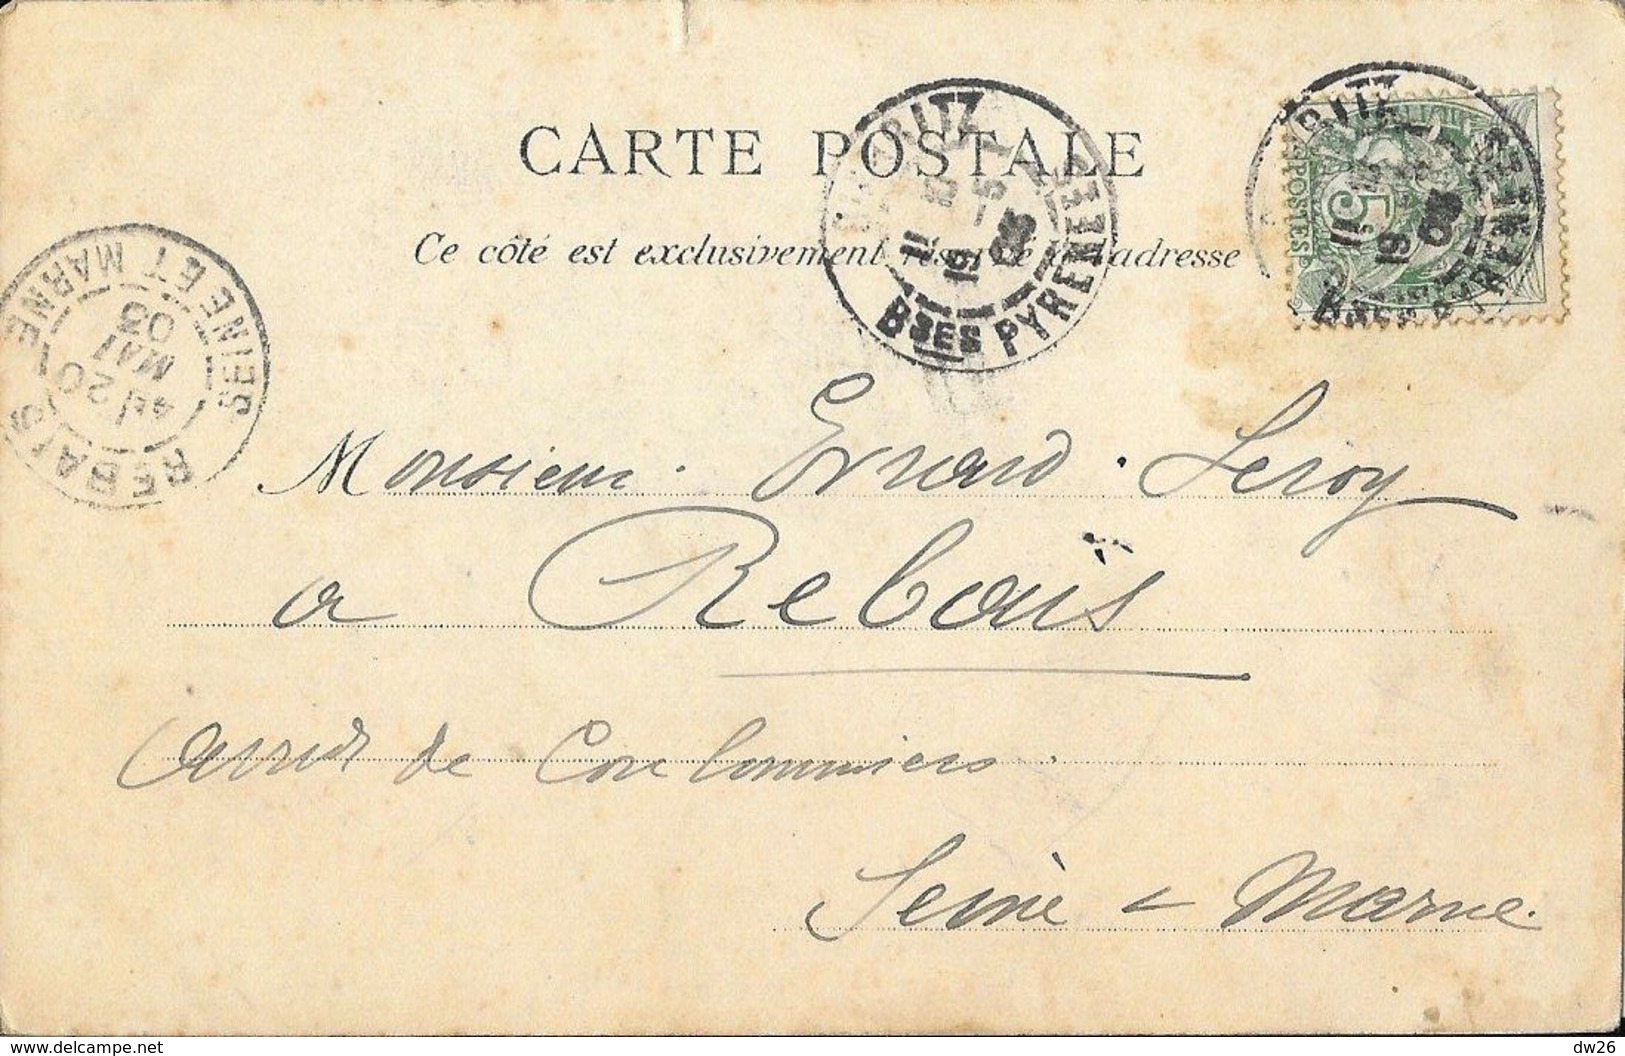 CARTE POSTALE
Ce côté est exclusivement réservé à l'adresse
BIARRITZ
19
Bses PYRENEES
RITZ
POSTES
5
19
SEINE ET MARNE
REBAIS
20
MAI
03
Monsieur. Evrard. Leroy
a Rebais
de Coulommiers.
Seine & Marne.
delcampe.net
dw26